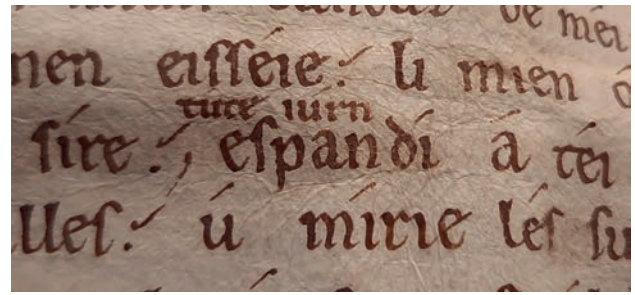 de mei
nen eisséie. li mien
tute iúrn
síre. espandí á téi
lles. ú mírie lés su